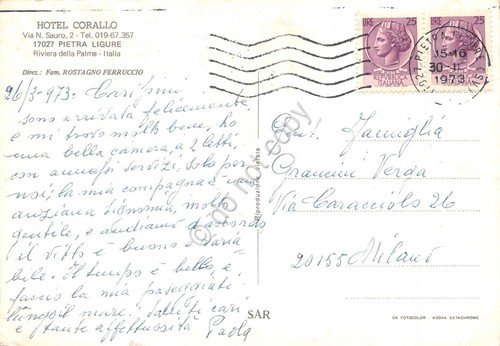 HOTEL CORALLO
Via N. Sauro, 2 - Tel. 019-67.357
17027 PIETRA LIGURE
Riviera delle Palme - Italia
Direz.: Fam. ROSTAGNO FERRUCCIO
26/3-973 - Carissimi
sono arrivata felicemente
e mi trovo molto bene, ho
una bella camera, a 2 letti,
con annessi servizi, solo per
noi; la mia compagna è
anziana molto
gentile, e andiamo d'accordo
il vitto è buono e varia
bile. Il tempo è bello, e
faccio la mia passeggiata
lungo il mare. Saluti cari
e tante affettuosità Paola
LIRE 25
REPUBBLICA ITALIANA
LIRE 25
17027 PIETRA LIGURE
15-16
1973
Gent. Famiglia
Verga
Via Caracciolo 26
20155 Milano
Riproduzione vietata
SAR
CA FOTOCOLOR - KODAK EKTACHROME
do not copy